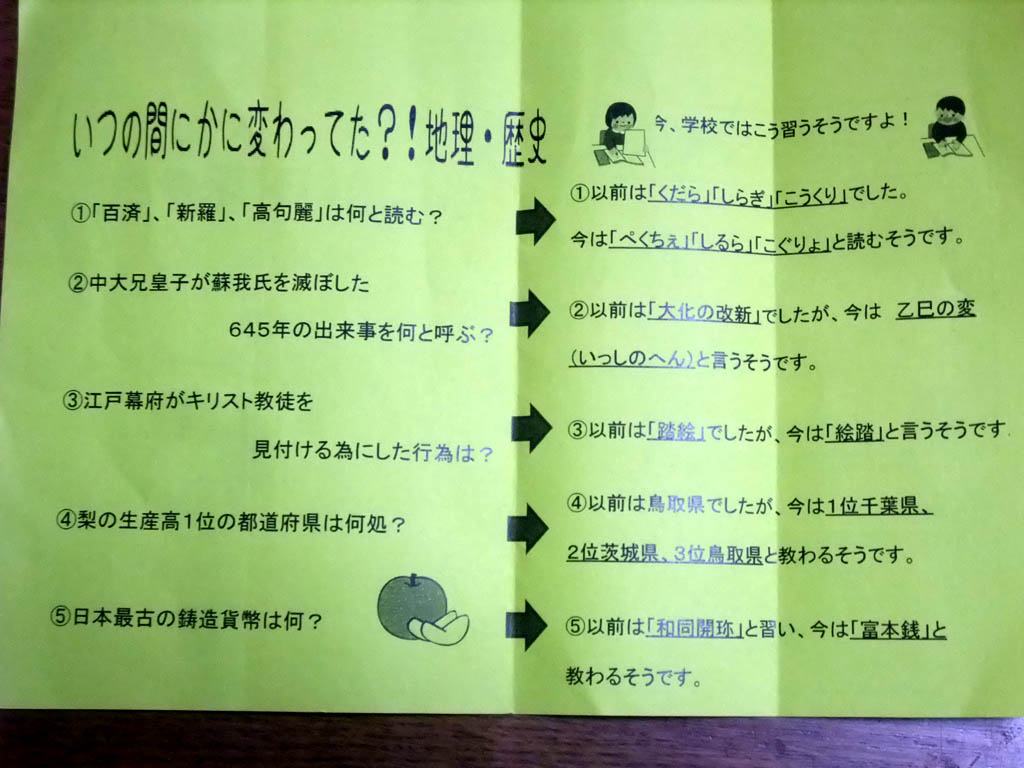 いつの間にかに変わってた？！地理・歴史
今、学校ではこう習うそうですよ！
①「百済」、「新羅」、「高句麗」は何と読む？
①以前は「くだら」「しらぎ」「こうくり」でした。
今は「ぺくちぇ」「しるら」「こぐりょ」と読むそうです。
②中大兄皇子が蘇我氏を滅ぼした
645年の出来事を何と呼ぶ？
②以前は「大化の改新」でしたが、今は　乙巳の変
（いっしのへん）と言うそうです。
③江戸幕府がキリスト教徒を
見付ける為にした行為は？
③以前は「踏絵」でしたが、今は「絵踏」と言うそうです.
④梨の生産高1位の都道府県は何処？
④以前は鳥取県でしたが、今は1位千葉県、
2位茨城県、3位鳥取県と教わるそうです。
⑤日本最古の鋳造貨幣は何？
⑤以前は「和同開珎」と習い、今は「富本銭」と
教わるそうです。